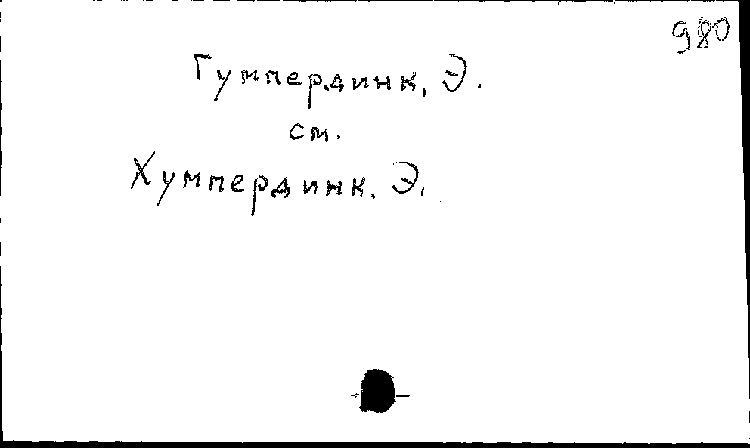 980
Гумпердинк, Э.
см.
Хумпердинк, Э.